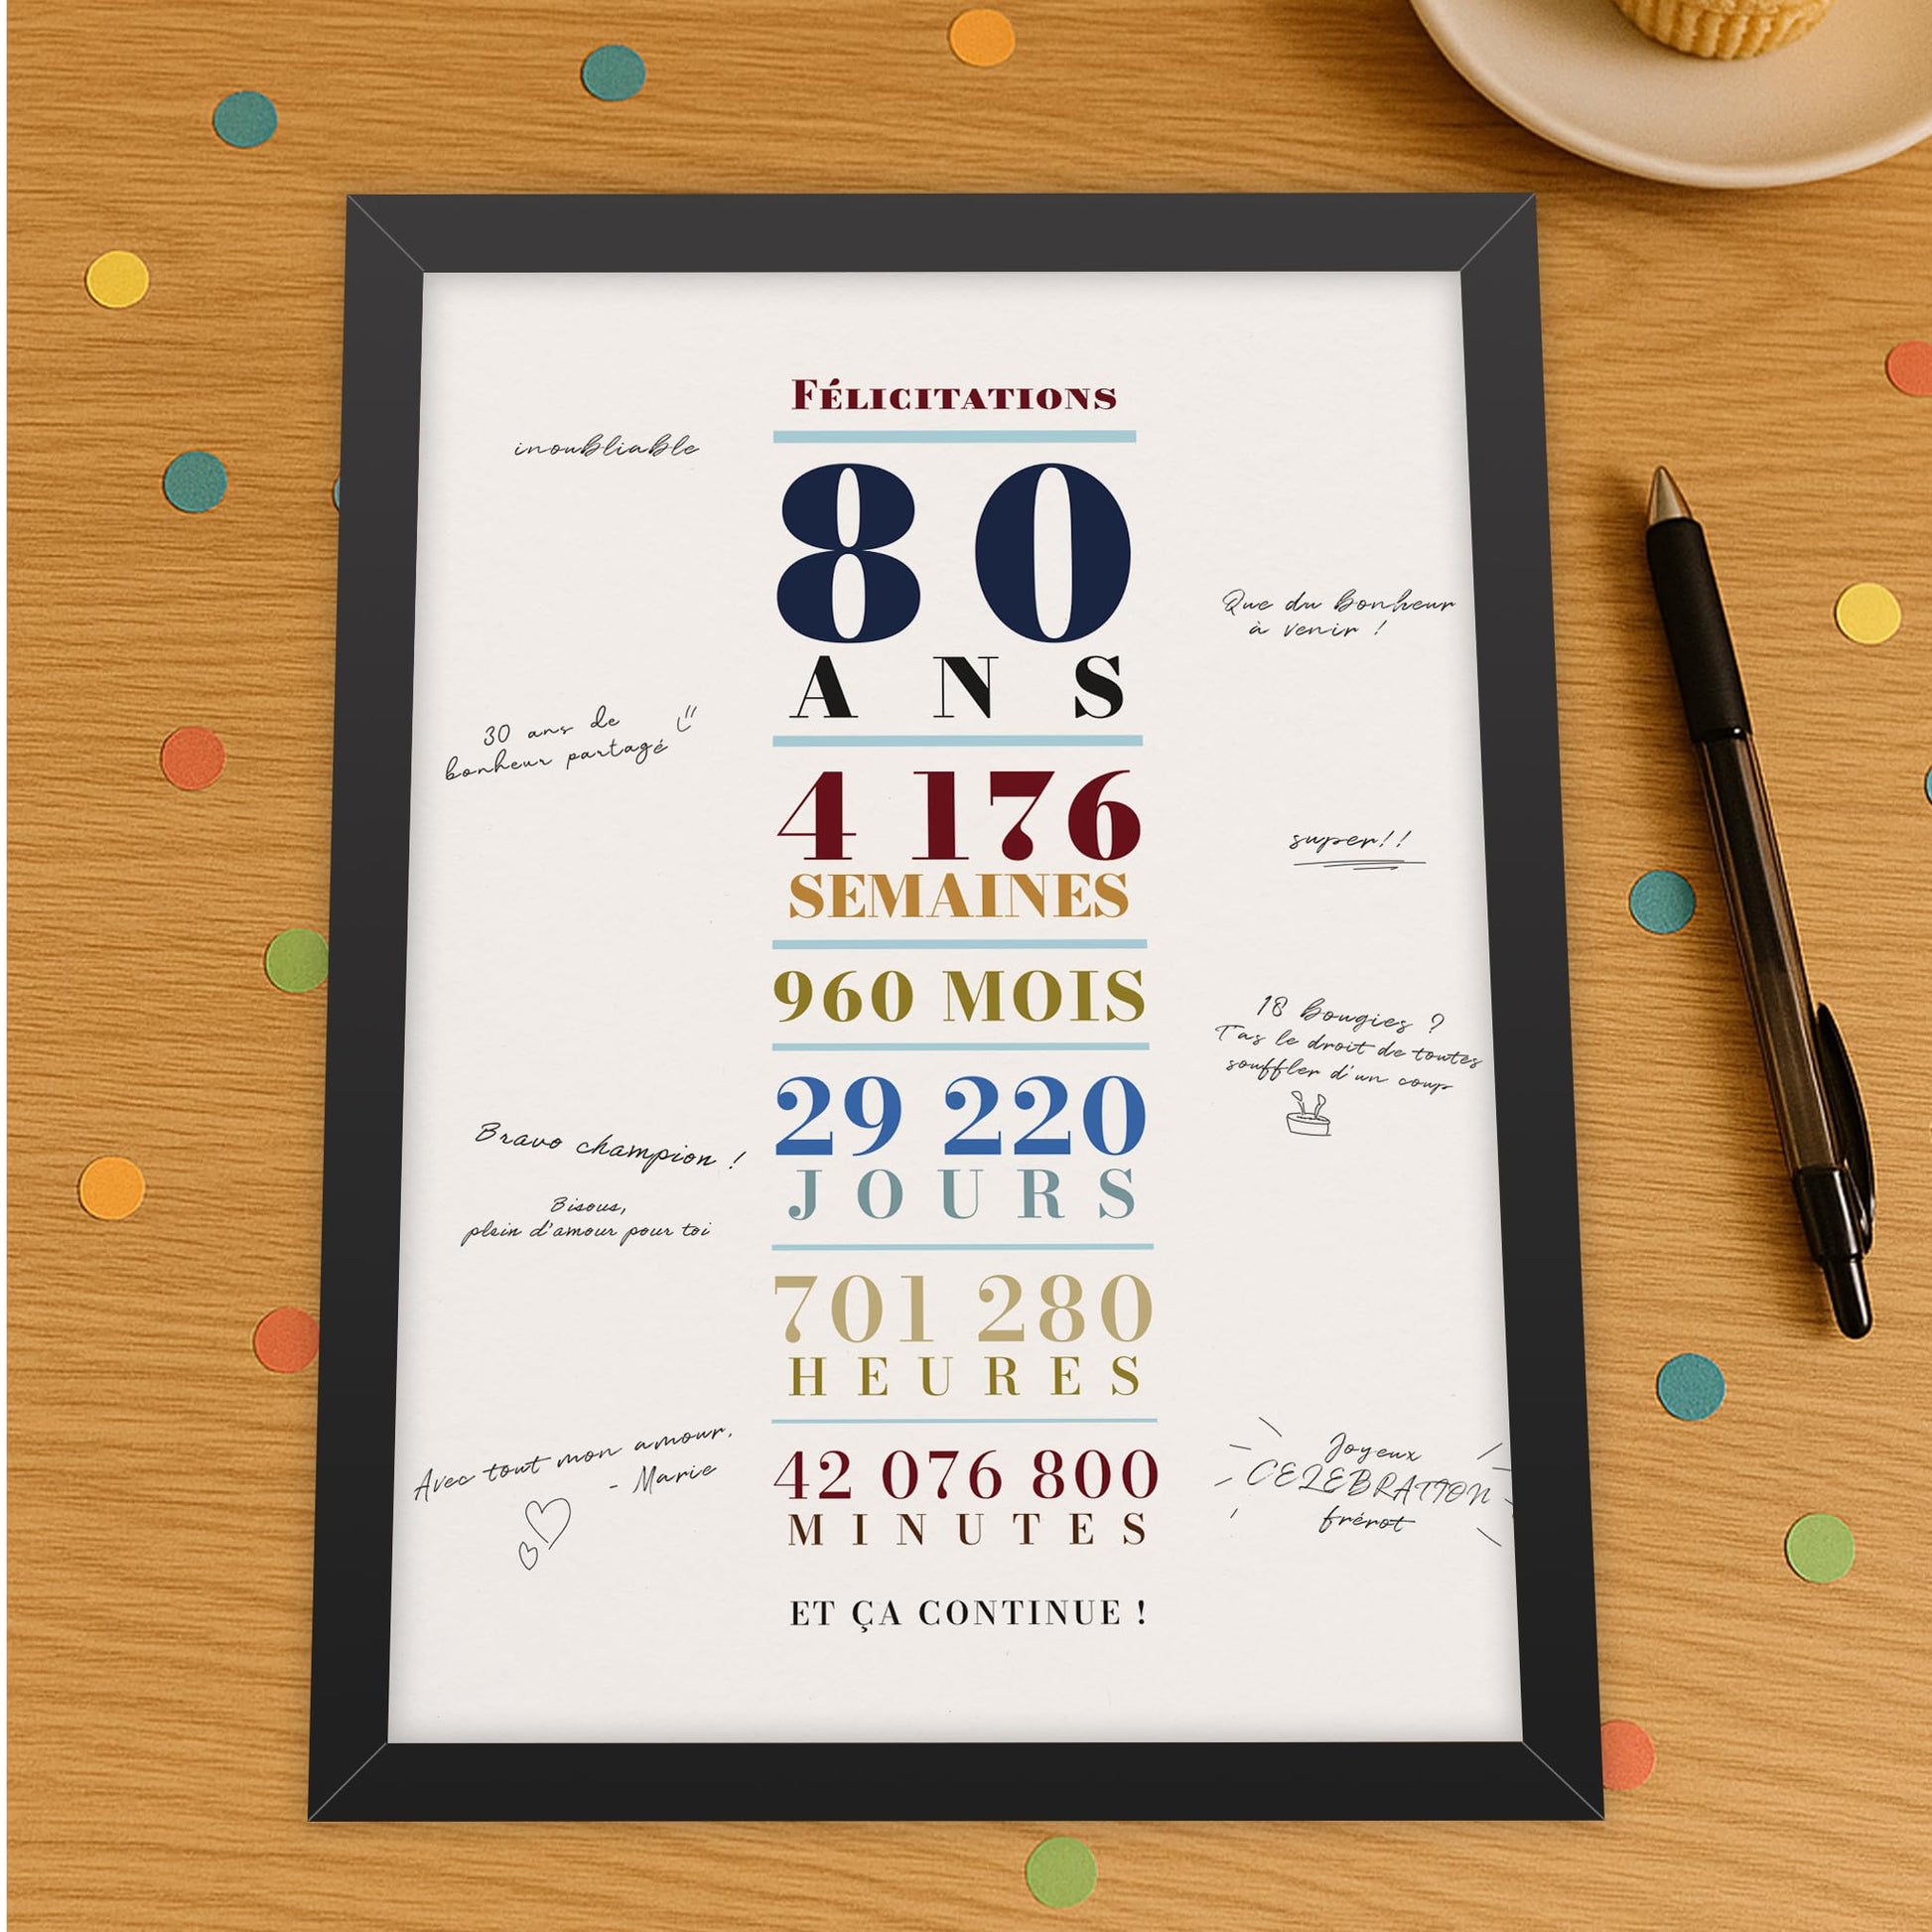 Félicitations
inoubliable
80
ANS
Que du bonheur
à venir !
30 ans de
bonheur partagé
4 176
SEMAINES
super!!
960 MOIS
18 bougies ?
T'as le droit de toutes
souffler d'un coup
29 220
JOURS
Bravo champion !
Bisous,
plein d'amour pour toi
701 280
HEURES
Avec tout mon amour,
- Marie
42 076 800
MINUTES
Joyeux
CELEBRATION
frérot
ET ÇA CONTINUE !